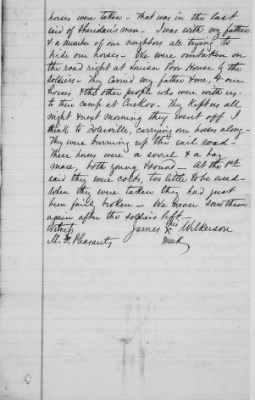 horses were taken - That was in the last
raid of Sheridan's men - I was with my father
& a number of our neighbors all trying to
hide our horses - We were overtaken on
the road right at Louisa Poor House by the
soldiers - They carried my father & me, & our
horses & the other people who were with us
to their camp at Cuckoo. They kept us all
night & next morning they went off I
think to Tolersville, carrying our horses along -
They were burning up the rail road -
These horses were a sorrel & a bay
mare, both young & sound -
said they were colts, too little to be used -
when they were taken they had just
been fairly broken - We never saw them
again after the soldiers left -
Witness James his X Wilkerson
M. F. Pleasants mark